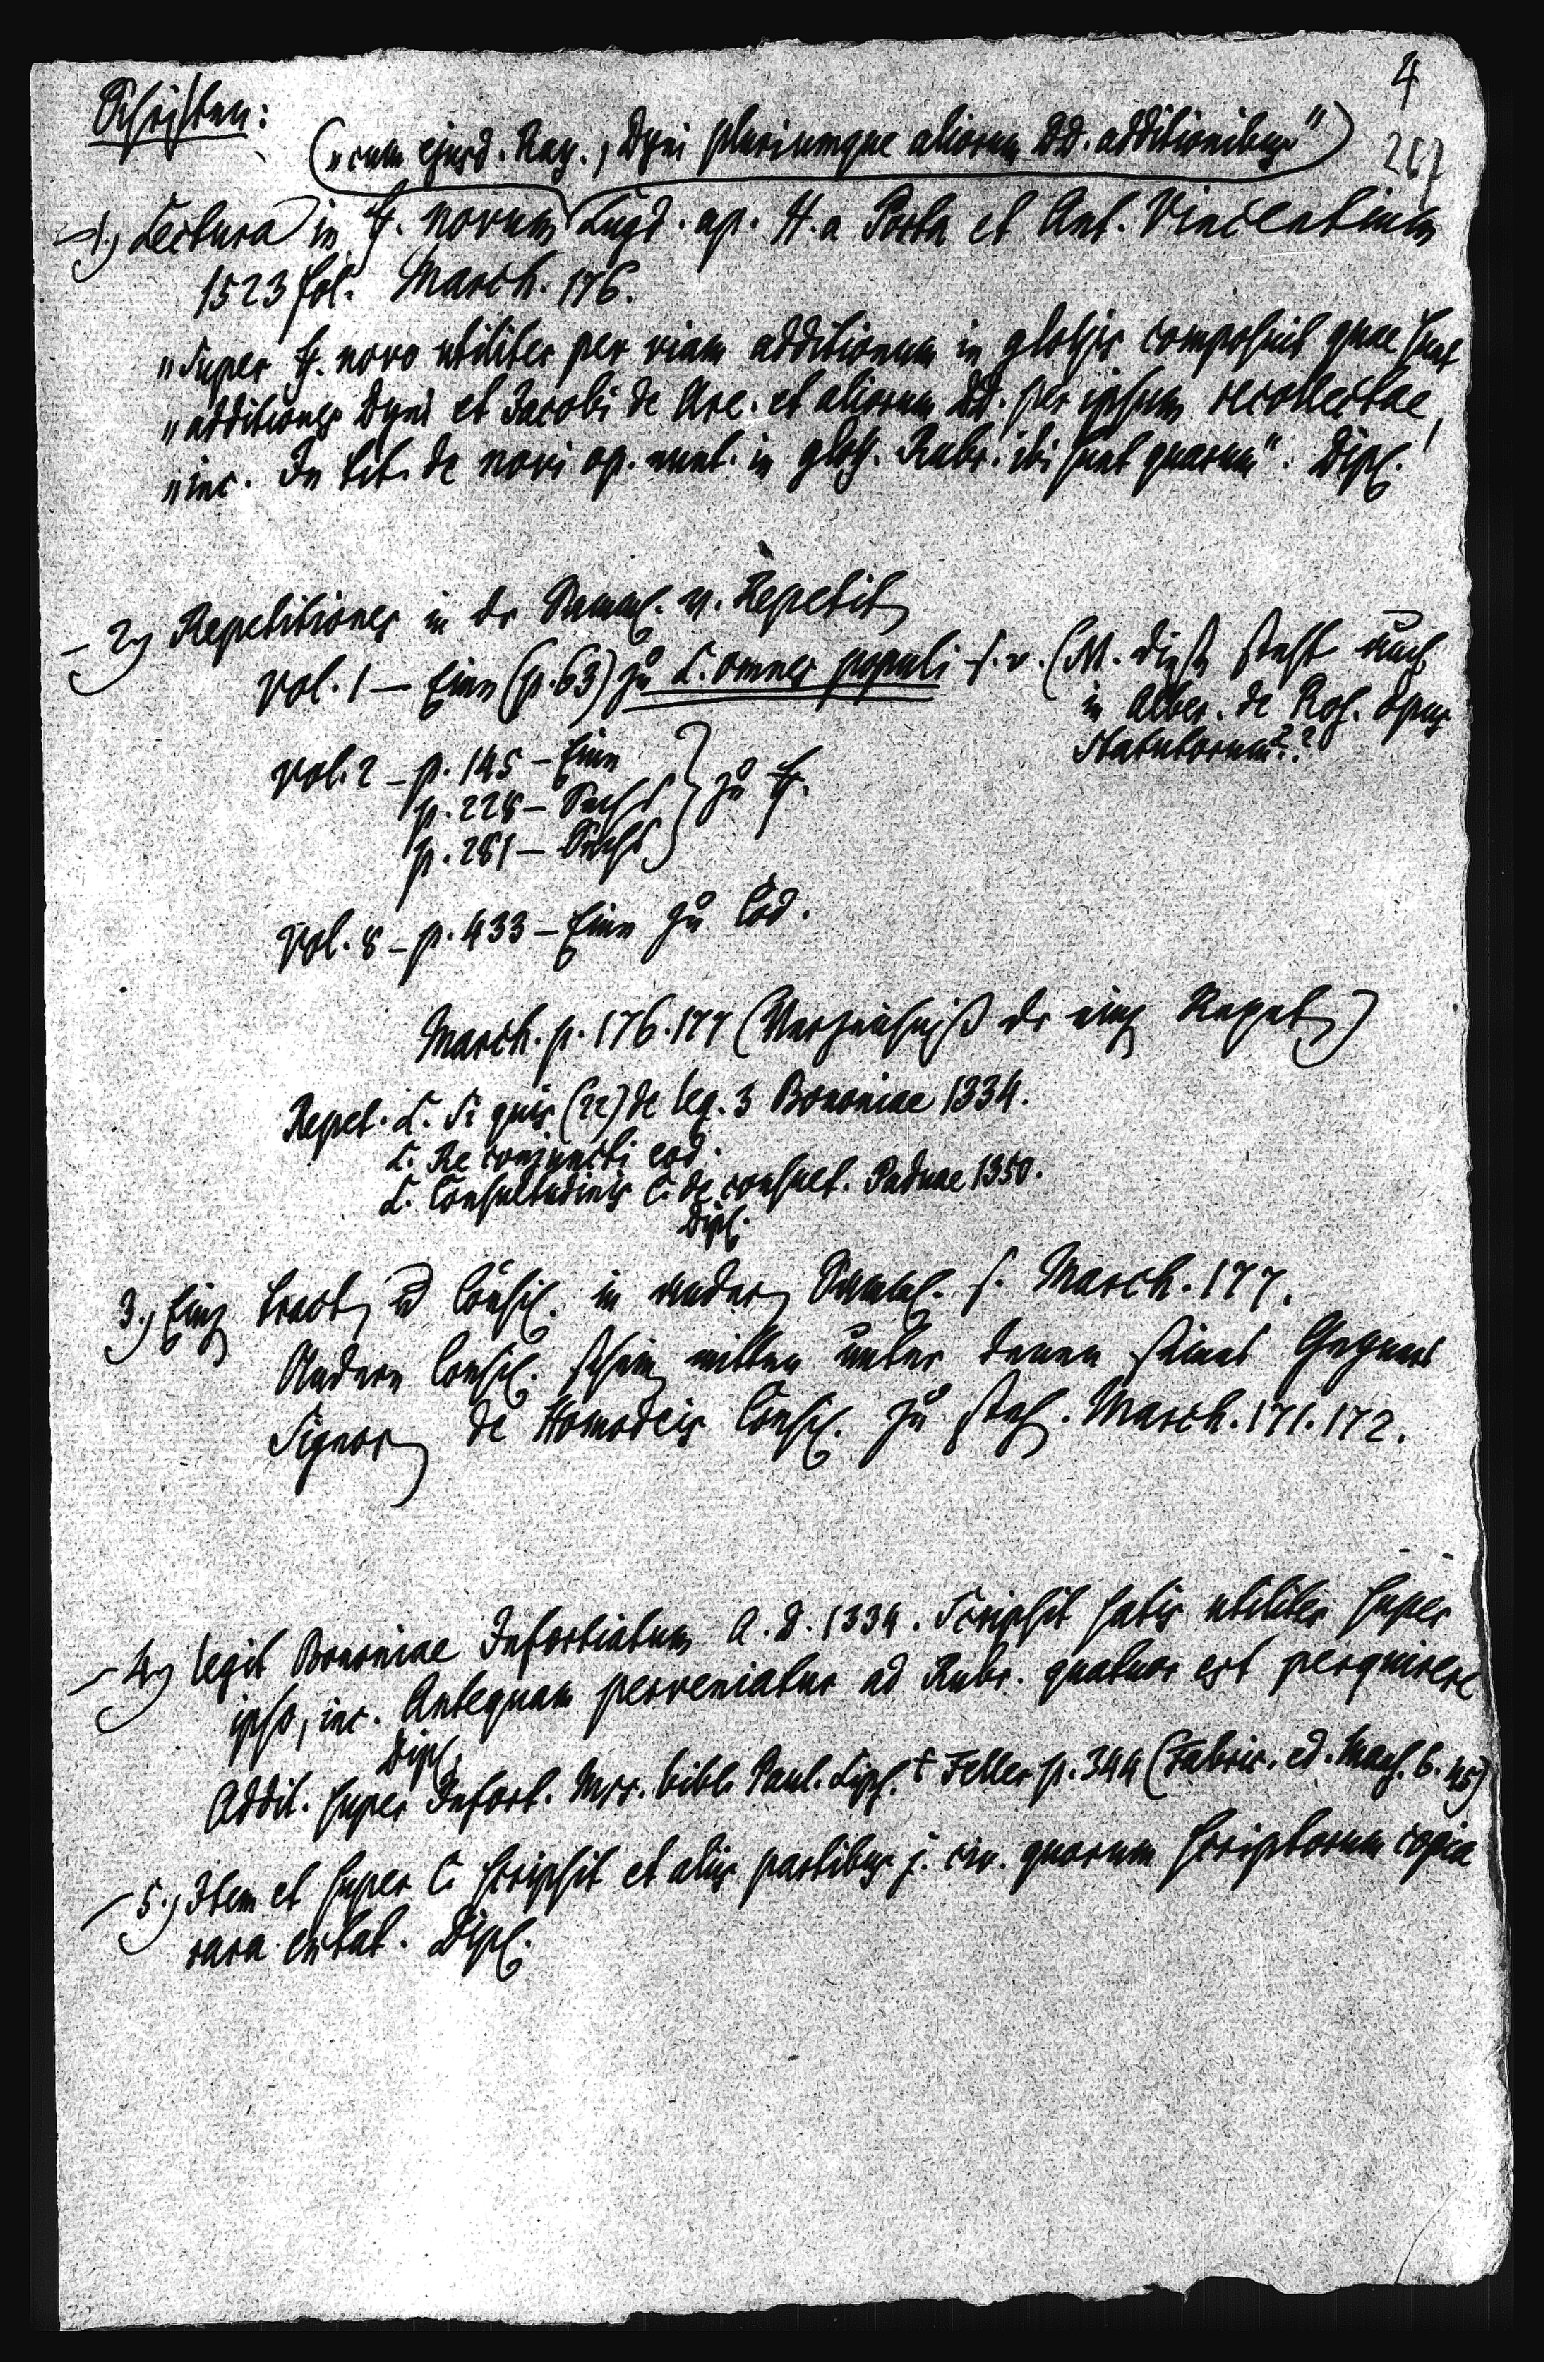 4
267
Schriften:
(„cum ejusd. Ray., Dyni pluriumque aliorum DD. additionibus“)
1.) Lectura in ff. novum Lugd. ap. H. a Porta et Ant. Vincentium
1523 fol. March. 176.
„Super ff. novo utiliter per viam additionum in glossis composuit quae sunt
„additiones Dyni et Jacobi de Are. et aliorum DD. per ipsum recollectae,
„inc. In tit. de novi op. nunt. in gloss. Rubr. ibi sunt quarum“. Dipl.
2) Repetitiones in dr Samml. v. Repetit
Vol. 1 — Eine (p. 63) zu L. omnes populi s. v. (NB. dieß steht auch
in Alber. de Ros. opus
Statutorum??
Vol. 2 – p. 145 – Eine
p. 228 – Sechs
p. 281 – Sechs
zu ff.
Vol. 8 – p. 433 – Eine zu Cod.
March. p. 176. 177 (Verzeichniß dr einz Repet)
Repet. L. Si quis (22) de leg. 3 Bononiae 1334.
L. Re conjuncti eod.
L. Consuetudinis C. de consuet. Paduae 1350.
Dipl.
3.) Einz Tract u Consil. in andern Samml. s. March. 177.
Andere Consil. schein mitten unter denen seines Gegners
Signor de Homodeis Consil. zu steh. March. 171. 172.
4) legit Bononiae Infortiatum A. D. 1334. Scripsit satis utiliter super
ipso, inc. Antequam perveniatur ad Rubr. quatuor est perquirere
Dipl.
Addit. super Infort. Mss. bibl. Paul. Lips. Feller p. 344 (Fabric. ed. Mans. 6. 45)
5.) Item et super C. scripsit et aliis partibus j. civ. quorum scriptorum copia
rara extat. Dipl.